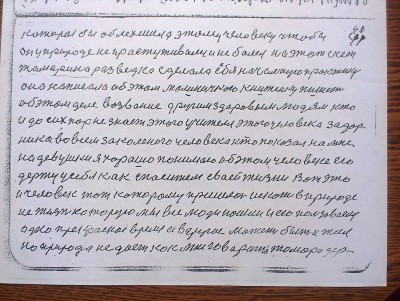 которая бы облехшила этому человеку чтобы
он у природе не простуживался и не болел на этот счет
тамарина разведко сделала себя на самую практику
она написала об этом маличичкою книжну пишет
об этом деле возвание другим здаровым людям кто
и до сих пор не знает этого учителя этого человека за дар
ника во всем заколеного человека кто показал на мне
на девушки я хорашо понимаю об этом человеке его
держу у себя как спасителя своей жизни Вот это
и человек тот которому пришлось искат в природе
не тих которую мы все люди нашли и его ползваем
одно прекрасное время а вдругое может быть и жил
но природа не дает как мне говарит